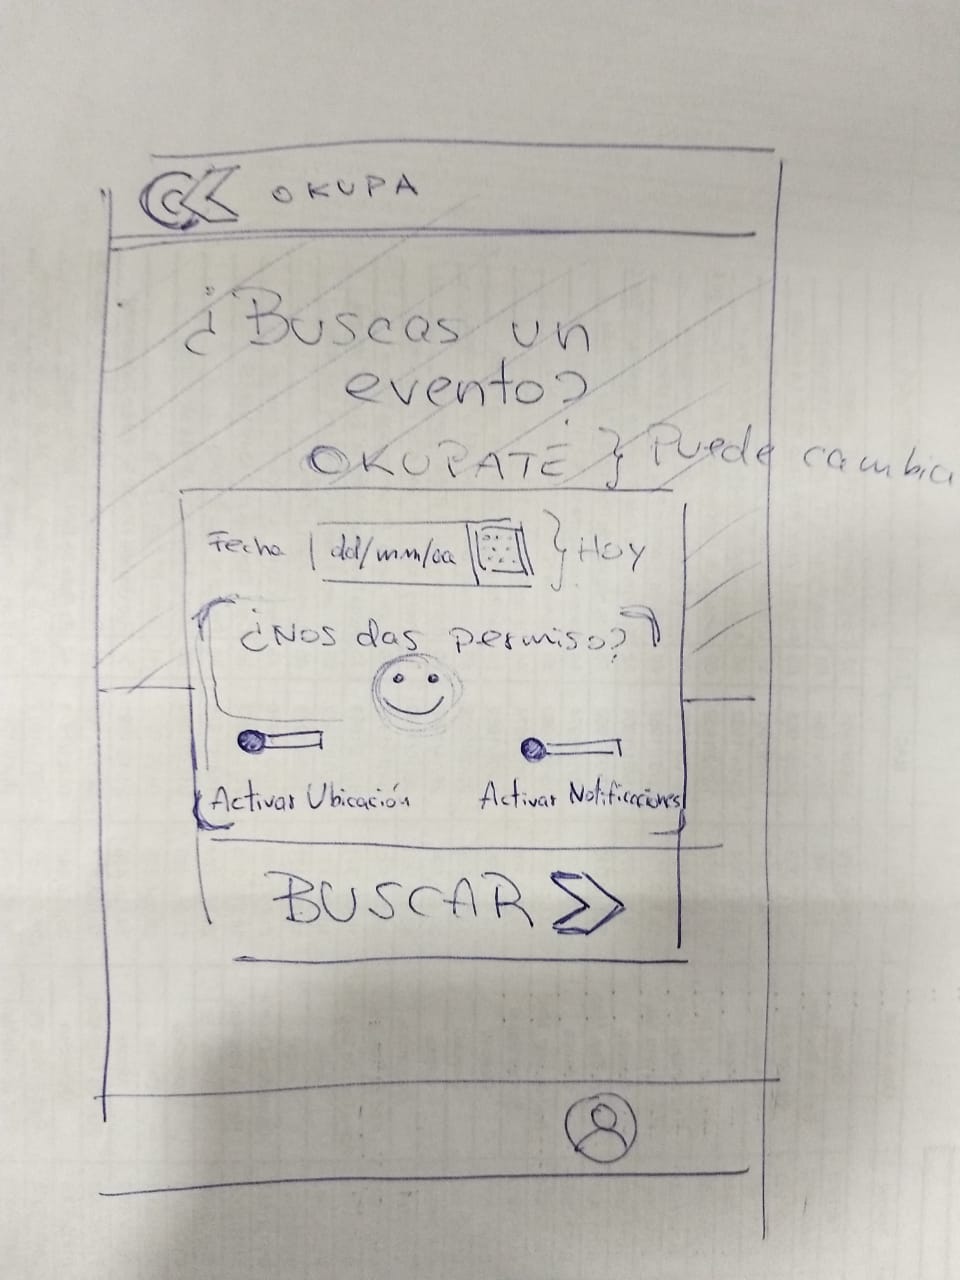 OKUPA
¿Buscas un
evento?
OKUPATÉ } Puede cambia
Fecha dd/mm/aa } Hoy
¿Nos das permiso?
Activar Ubicación Activar Notificaciones
BUSCAR